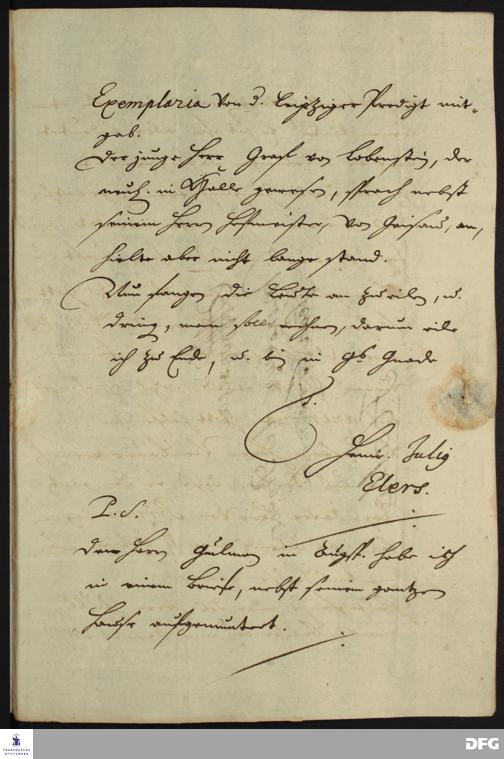 Exemplaria von d. Leipziger Predigt mit-
gab.
Der junge Herr Graf von Lobenstein, der
neul. in Halle gewesen, sprach nebst
seinem Herrn Hofmeister, von Geisau, an,
hielte aber nicht lange stand.
Nun fangen die Leute an zu eilen, u.
dring, man soll, darum eile
ich zu Ende, u. bin in Gs Gnade
Henr. Julig
Elers.
P. S.
Den Herrn Hülman in Augsp. habe ich
in einem Briefe, nebst seinem gantzen
Hause aufgemuntert.
FRANCKESCHE
STIFTUNGEN
DFG